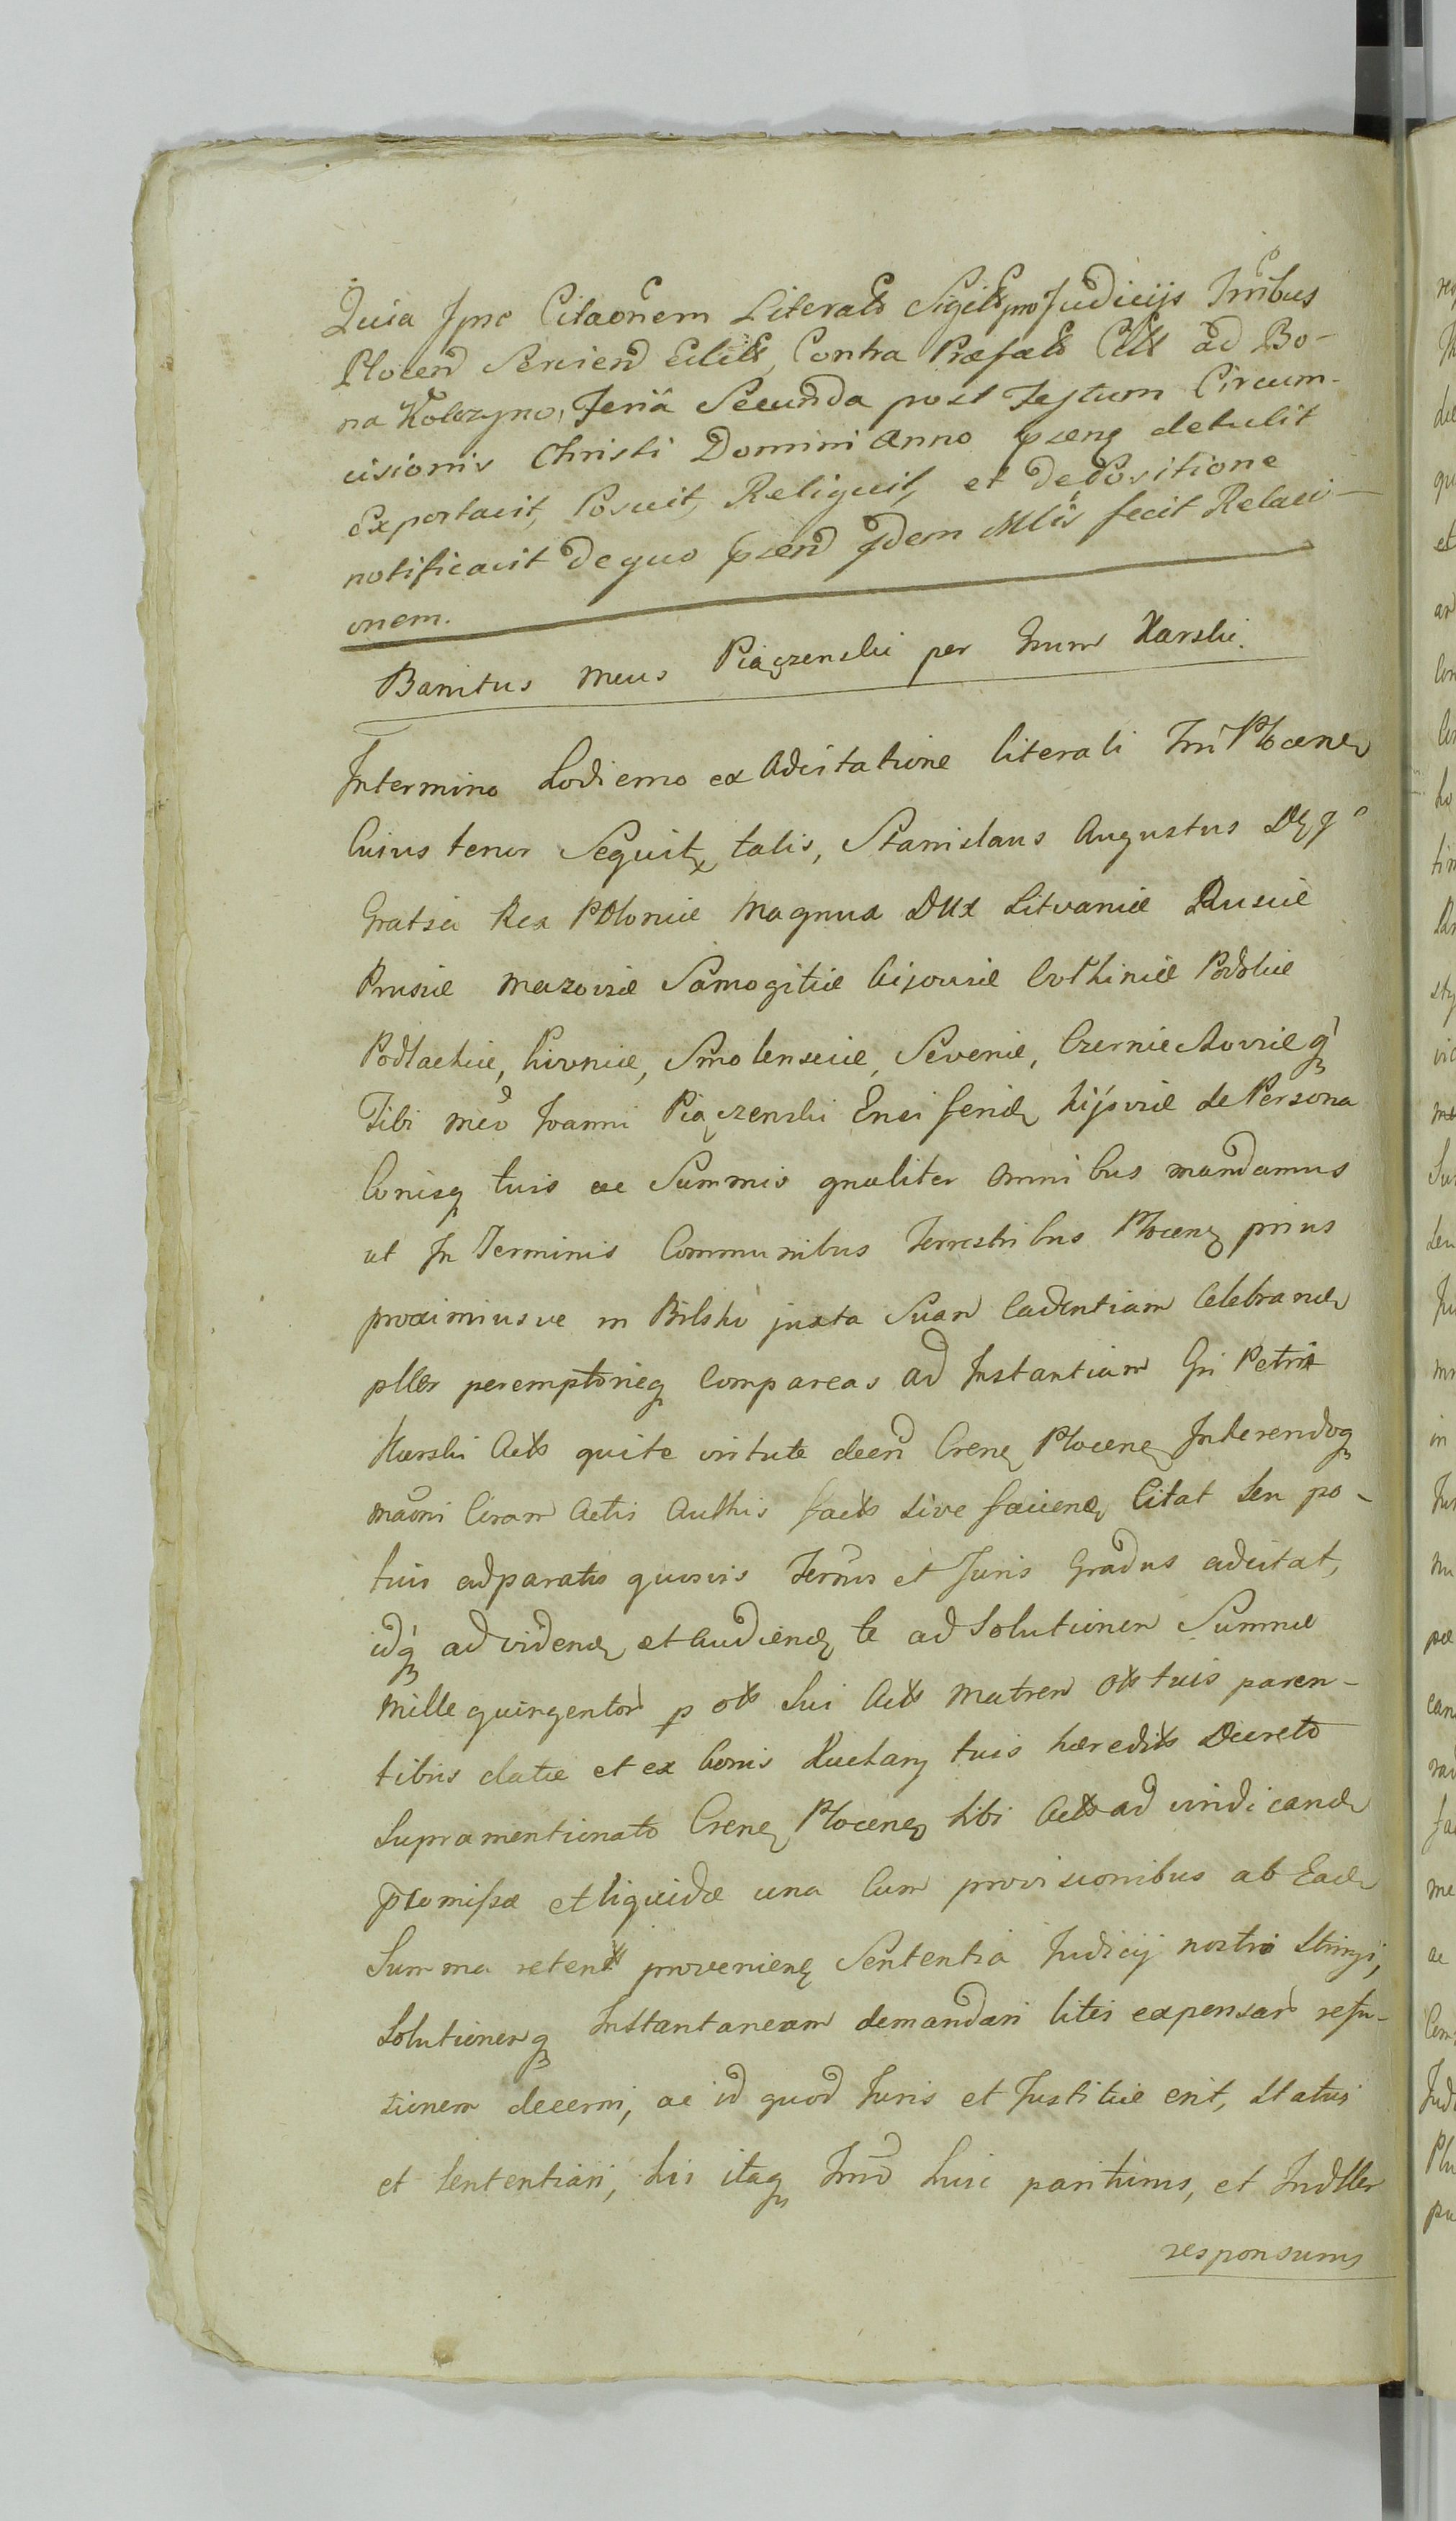 Quia Ipse Citaonem Literalẽ Sigillõ pro Judicijs Trribus
Plocen Servien Edit, Contra Præfat Citt ad Bo-
na Kolczyno, Feriâ Secunda post Festum Circum-
cisionis Christi Domini Anno præsenq detulit
Exportavit, Posuit, Reliquit, et de Positione
notificavit de quo præsen Idem Mlis fecit Relaci-
onem.
Banitus Mcus Piączenski per Grum Karski.
In termino hodierno ex Adcitatione literali Trri Plocen
Cuius tenor Sequit talis, Stanislaus Augustus Dei
Gratia Rex Poloniæ Magnus Dux Litvaniæ Rusiæ
Prusiæ Mazoviæ Samogitiæ Kijoviæ Volhiniæ Podoliæ
Podlachiæ, Livoniæ, Smolensciæ, Seveniæ, Czernie Aoviæq
Tibi Mco Joanni Piączenski Ensiferid Kijoviæ de Persona
bonisq tuis ac Summis gnaliter omnibus mandamus
ut In Terminis Communibus Terrestribus Plocenq prius
proximiusve in Bilsko juxta Suan Cadentiam Celebrand
pller peremptorieq Compareas ad Instantiam Gri Petri
Karski Acts qui te virtute decen Crenq Plocenq Inferendoq
maoni Ciram Actis Authis facts sive faciend Citat seu po-
tius adparatis quosvis Termis et Juris Gradus adcitat,
idq ad videnq et Audienq te ad Solutionem Summæ
Mille quingentor p ots Sui Acts Matren Ots tuis paren-
tibus datæ et ex bonis Kuchary tuis hæredits Decreto
Supramentionato Crenq Plocenq Sibi Acts ad vindicand
promissæ et liquidæ una Cum provisionibus ab Ead
Summa retent provenienq Sententia Judicij nostri Stringi,
Solutionenq Instantaneam demandari litis expensar refu-
sionem decerni, ac id quod Juris et Justitiæ erit, Statui
et Sententiari, his itaq Trmo huic pariturus, et Indller
responsurus